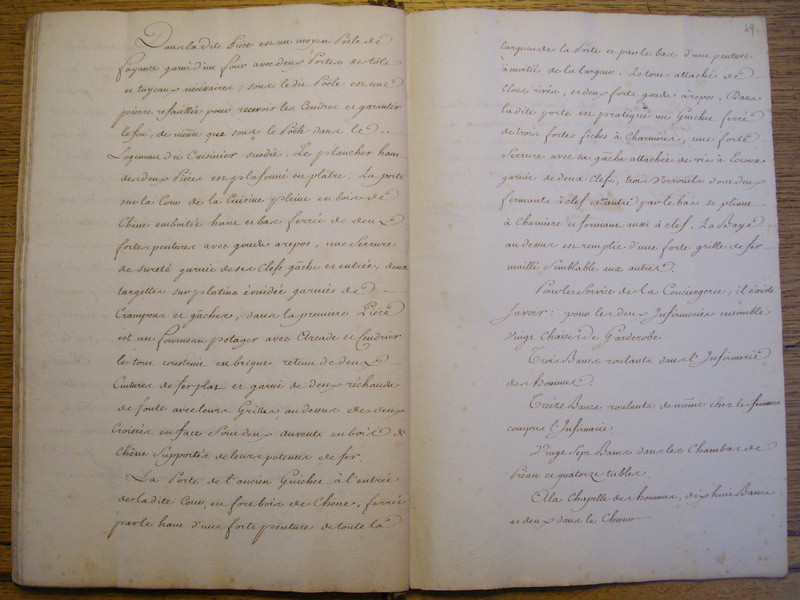 Dans la dite Pièce est un moyen Poële de
fayance garni d'un four avec deux Portes de tôle
et tuyaux nécéssaires; sous le dit Poële est une
pierre refouillée pour recevoir les Cendres et garantir
le feu, de même que sous le Poële dans le
Logement du Cuisinier susdit. Le plancher haut
des deux Pièces est plafonné en plâtre. La porte
sur la Cour de la Cuisine pleine en bois de
Chêne emboitée haut et bas ferrée de deux
fortes pentures avec gonds a repos, une Serrure
de sureté garnie de ses Clefs gâche et entrée, deux
targettes sur platine évuidée garnies de
Crampons et gâches, dans la première Pièce
est un fourneau potager avec Arcade et Cendrier
le tout construit en brique retenu de deux
Cintures de fer plat et garni de deux réchauds
de fonte avec leurs Grilles, au dessus des deux
Croisées en face sont deux auvents en bois de
Chêne supportés de leurs potences de fer.
La Porte de l'ancien Guichet à l'entrée
de la dite Cour, en fort bois de Chêne, ferrée
par le haut d'une forte penture de toute la
49.
largeur de la Porte et par le bas d'une penture
à moitié de la largeur. Le tout attaché de
Clous rivés, et deux forts gonds à repos. Dans
la dite porte est pratiqué un Guichet ferré
de trois fortes fiches à Charnières, une forte
Serrure avec sa gâche attachée de vis à écroux
garnie de deux Clefs, trois Verrouils dont deux
fermants à clef et un autre par le bas se pliant
à Charnière et fermant aussi à clef. La Baye
au dessus est remplie d'une forte grille de fer
maillé semblable aux autres.
Pour le Service de la Conciergerie, il existe
savoir: pour les deux Infirmeries ensemble
Vingt Chaises de Garderobe.
Trois Bancs roulants dans l'Infirmerie
des hommes.
Treize Bancs roulants de même chez les femmes
compris l'Infirmerie.
Vingt Sept Bancs dans les Chambres de
Préau et quatorze tables.
A la Chapelle des hommes, dix huit Bancs
et deux dans le Choeur.